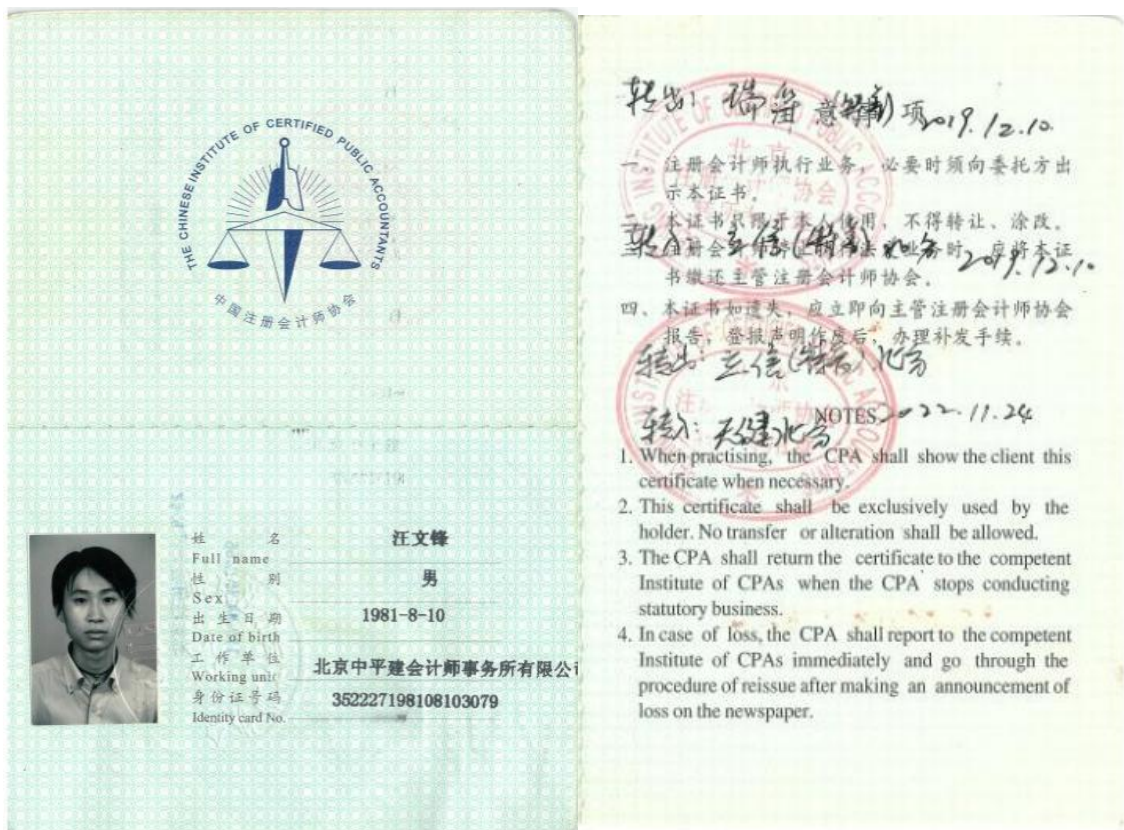 THE CHINESE INSTITUTE OF CERTIFIED PUBLIC ACCOUNTANTS
中国注册会计师协会
姓 名 汪文锋
Full name
性 别 男
Sex
出生日期 1981-8-10
Date of birth
工作单位 北京中平建会计师事务所有限公司
Working unit
身份证号码 352227198108103079
Identity card No.
转出: 瑞华(特普) 2019.12.10.
意 项
一、注册会计师执行业务,必要时须向委托方出
示本证书。
二、本证书只限于本人使用,不得转让、涂改。
转入: 立信(特普)北分 2019.12.10
注册会计师 业务时,应将本证
书缴还主管注册会计师协会。
四、本证书如遗失,应立即向主管注册会计师协会
报告,登报声明作废后,办理补发手续。
转出: 立信(特普)北分
转入: 天健北分 2022.11.24
NOTES
1. When practising, the CPA shall show the client this
certificate when necessary.
2. This certificate shall be exclusively used by the
holder. No transfer or alteration shall be allowed.
3. The CPA shall return the certificate to the competent
Institute of CPAs when the CPA stops conducting
statutory business.
4. In case of loss, the CPA shall report to the competent
Institute of CPAs immediately and go through the
procedure of reissue after making an announcement of
loss on the newspaper.